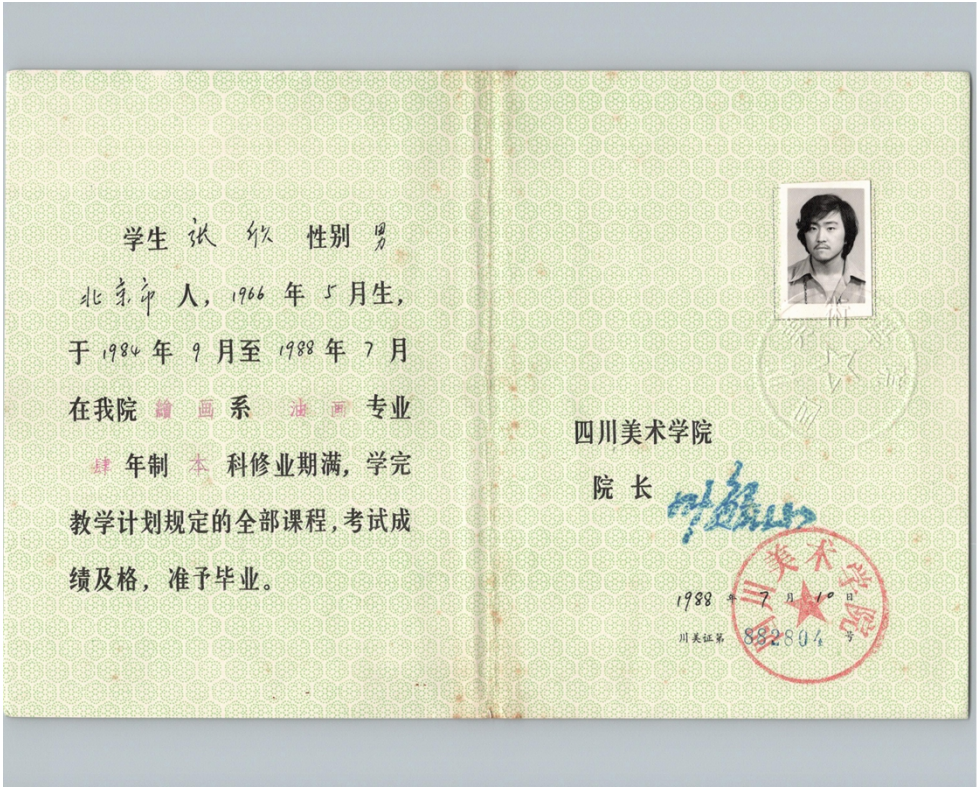 学生 张欣 性别 男
北京市 人，1966 年 5 月生，
于 1984 年 9 月至 1988 年 7 月
在我院 繪画 系 油画 专业
肆 年制 本 科修业期满，学完
教学计划规定的全部课程，考试成
绩及格，准予毕业。
四川美术学院
院长 叶毓山
四川美术学院
1988 年 7 月 10 日
川美证第 882804 号